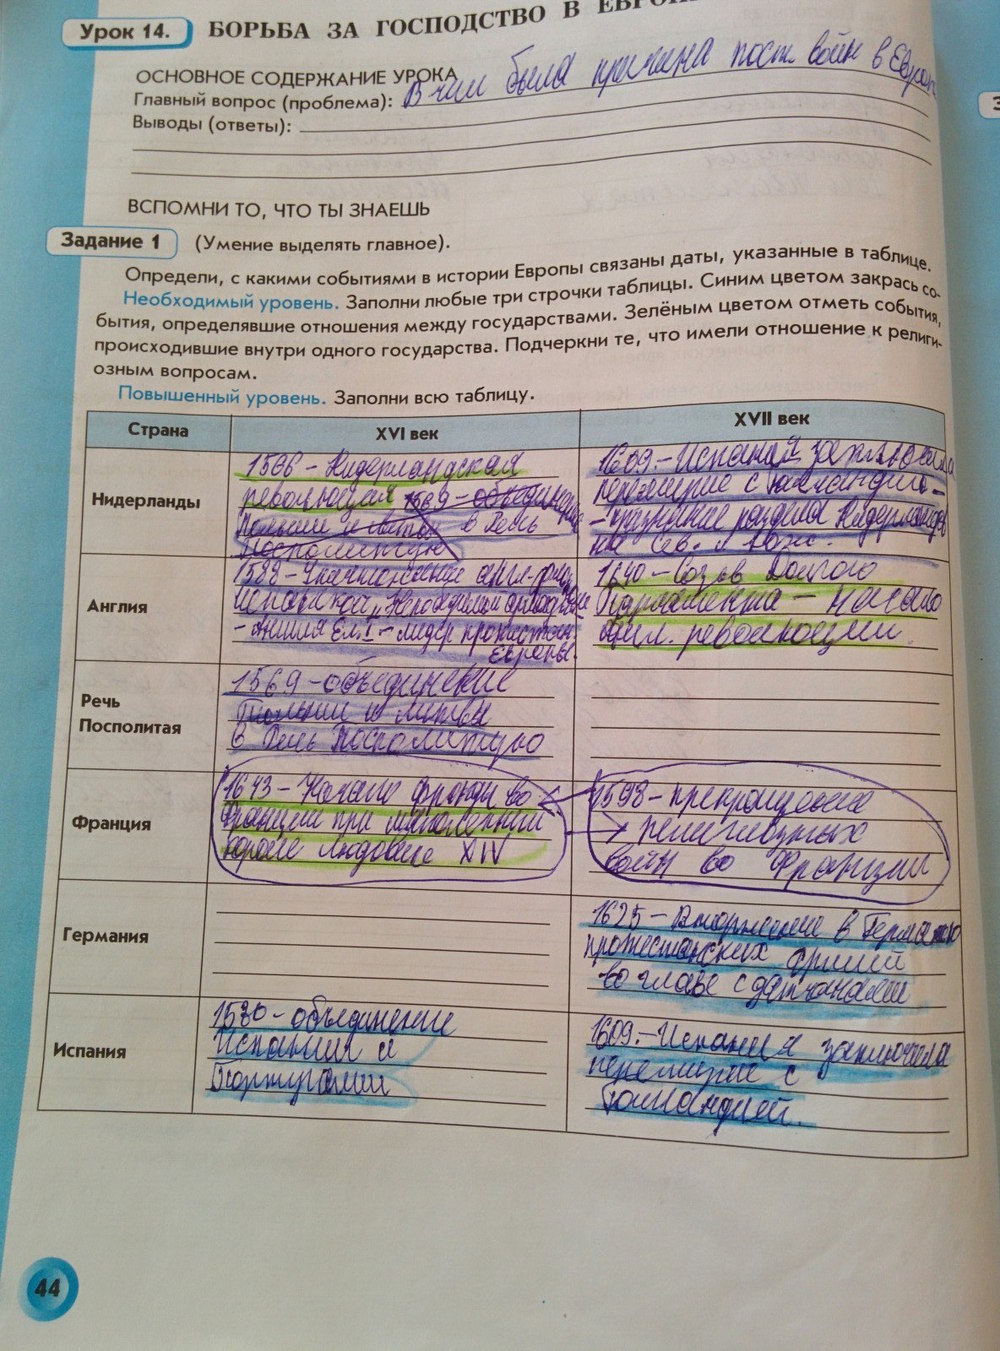 Урок 14. БОРЬБА ЗА ГОСПОДСТВО В ЕВРОП
ОСНОВНОЕ СОДЕРЖАНИЕ УРОКА
Главный вопрос (проблема): В чём была причина пост. войн в Европ
Выводы (ответы):
ВСПОМНИ ТО, ЧТО ТЫ ЗНАЕШЬ
Задание 1 (Умение выделять главное).
Определи, с какими событиями в истории Европы связаны даты, указанные в таблице.
Необходимый уровень. Заполни любые три строчки таблицы. Синим цветом закрась со-
бытия, определявшие отношения между государствами. Зелёным цветом отметь события,
происходившие внутри одного государства. Подчеркни те, что имели отношение к религи-
озным вопросам.
Повышенный уровень. Заполни всю таблицу.
Страна XVI век XVII век
Нидерланды
1566 – Нидерландская
революция, 1569 – объединение
Польши и Литвы в Речь
Посполитую
1609. – Испания заключила
перемирие с
– признание раздела Нидерландов
на Сев. и Юж.
Англия
1588 – Уничтожение англ. флотом
испанской "Непобедимой армады"
– Англия Ел. I – лидер протестан.
Европы.
1640 – созыв Долгого
Парламента – начало
англ. революции.
Речь
Посполитая
1569 – объединение
Польши и Литвы
в Речь Посполитую
Франция
1643 – Начало фронды во
Франции при малолетнем
короле Людовике XIV
1598 – прекращение
религиозных
войн во Франции
Германия
1625 – Вторжение в Германию
протестанских армий
во главе с датчанами
Испания
1580 – объединение
Испании и
Португалии
1609. – Испания заключила
перемирие с
Голландией.
44